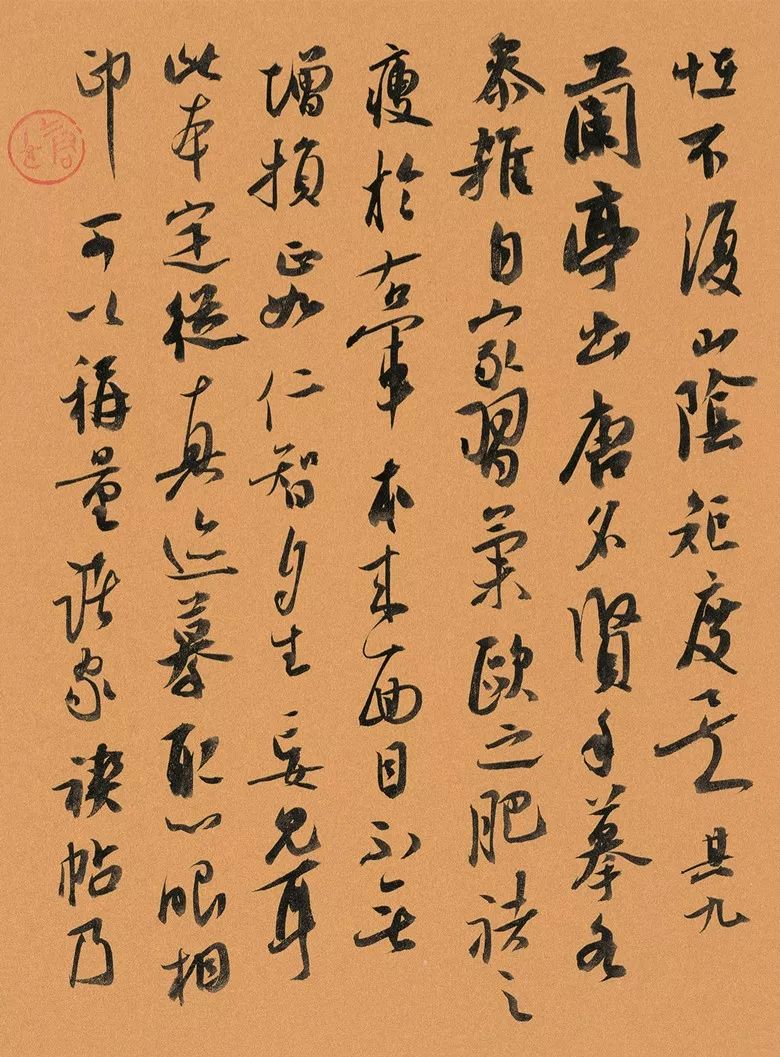 恒不復山陰矩度矣 其九
蘭亭出唐名賢手摹各
參雜自家習氣歐之肥褚之
瘦於右軍本來面目不無
增損正如仁智自生妄見耳
此本定從真迹摹取心眼相
印可以稱量諸家禊帖乃